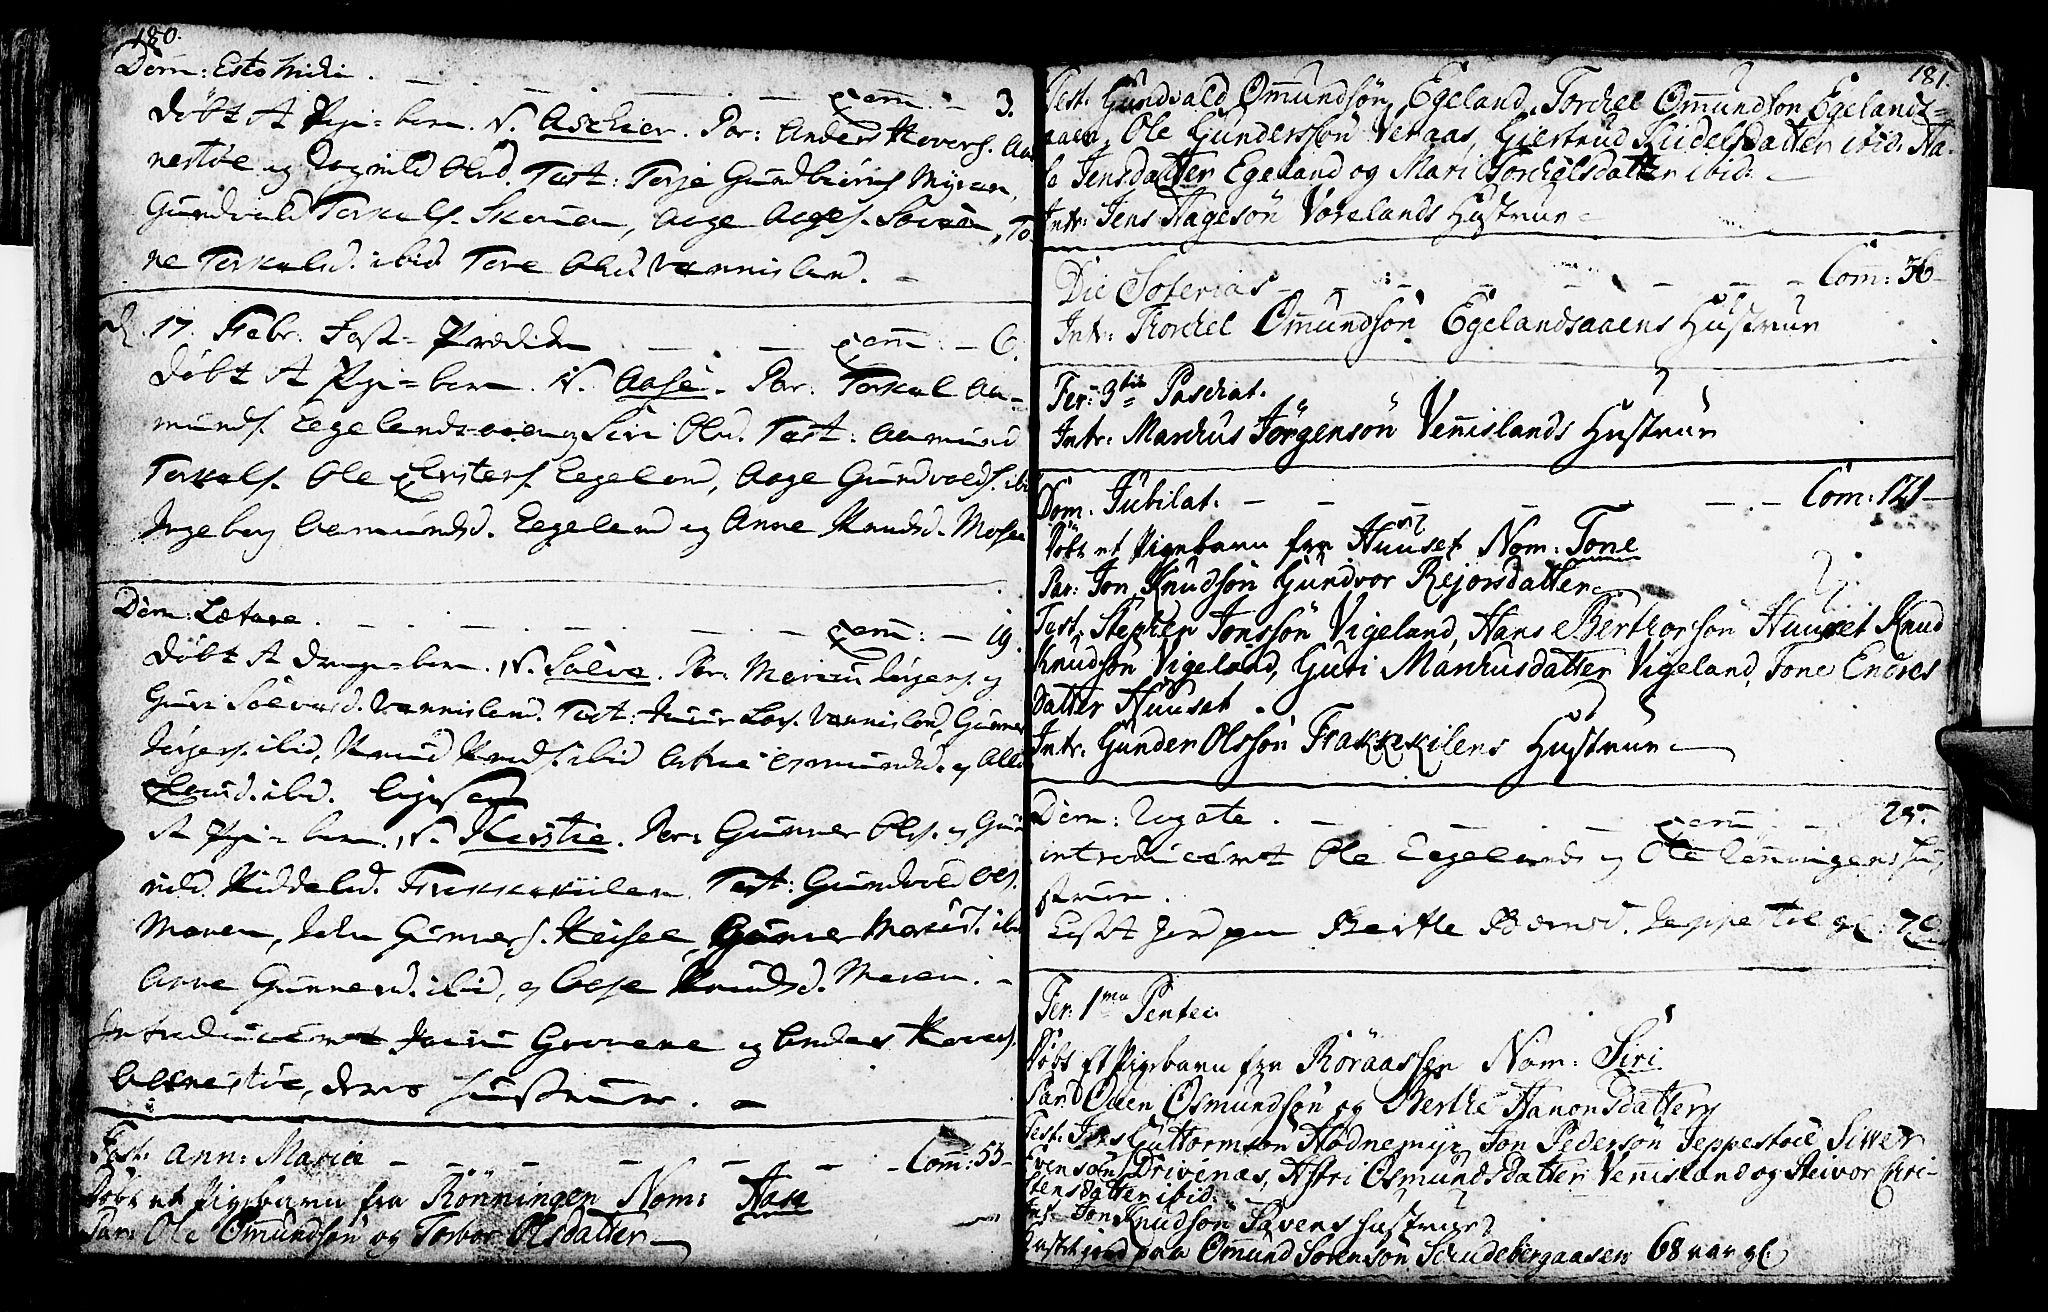 180.
Dom: Esto mihi. Com: - 3.
døbt et Pige-barn. N. Aschier. Par: Anders Havors. Aas
nestøe og Ragnild Olsd. Test: Terje Gundbiörns Myran,
Gundvald Torkels. Skouen, Aage Aages. Løvaas, To
ne Torkelsd. ibid Tore Olsd. Vennisland. -
d. 17. Febr. Fast-Prædiken - - Com: - 6.
døbt et Pige-barn. N. Aase. Par: Torkel Aa-
munds. Eegelands-aaen og Siri Olsd. Test: Aamund
Torkels. Ole Christens. Eegeland, Aage Gundvalds. ibid
Ingeborg Aamundsd. Eegeland og Anne Knudsd. Mosen
Dom: Lætare. Com: - 19.
døbt et drenge-barn. N. Salve. Par: Marcus Jörgens. og
Guri Salvesd. Vennisland. Test: Lars. Vennisland, Gunner
Jörgens. ibid, Knud Knuds. ibid Osmundsd. og
ibid. ligesaa
et Pige-barn. N. Kirstie. Par: Gunner Ols. og Gun
nild Kiddelsd. Frekkekiilen. Test: Gundvald Ols.
Moren, John Gunners. Heisel, Gunner ibid
Anne Gunnersd. ibid, og Aase Knudsd. Moren. -
Introduceret Grovene og Anders Havors.
Aasnestöe, deres Hustruer. -
Fest. Ann: Mariæ - - - - - - Com: 53-
Döbt et Pigebarn fra Rönningen Nom: Aase
Par: Ole Omundsön og Torbor Olsdatter
181.
Test. Gundvald Omundsön Egeland, Torchel Omundsön Egelands-
aaen, Ole Gundersson Veraas, Giertrud Kiddelsdatter ibid. Aa-
se Jensdatter Egeland og Mari Torchelsdatter ibid:
Intr: Jens Aagesön Vorelands Hustrue
Die Soterias - - - - - - - Com: 36-
Intr: Torchel Omundsön Egelandsaaens Hustrue
Fer: 3tia Paschat.
Intr: Marchus Jörgensön Vennislands Hustrue
Dom. Jubilat. - - - - - - Com: 121-
Döbt et Pigebarn fra Huuset Nom: Tone
Par: Jon Knudsön Gundvor Rejorsdatter
Test. Stephen Jonssön Vigeland, Hans Berthorsön Huuset Knud
Knudsön Vigeland, Guri Marchusdatter Vigeland, Tone Endres
datter Huuset.
Intr: Gunder Olssön Frakkekilens Hustrue
Dom: Rogate. Com - 25.
introduceret Ole Eegelands og Ole Rönningens Hu
struer.
Kast Jord paa Berthe Biörnsd. Jeppestöl gl: 70
Fer: 1ma Pentec:
Döbt et Pigebarn fra Röraassen Nom: Siri
Par: Oden Osmundsön og Berthe Hanonsdatter
Test: Jens Guttormsön Hodnemyr, Jon Pedersön Jeppestoel Siver
Evensön Drivenæs, Astri Osmundsdatter Vennisland og Steivor Chri-
stensdatter ibid:
Int: Jon Knudsön Savens Hustrue
Kast Jord paa Omund Sorensön Skudebergaasen 68 aar gl.